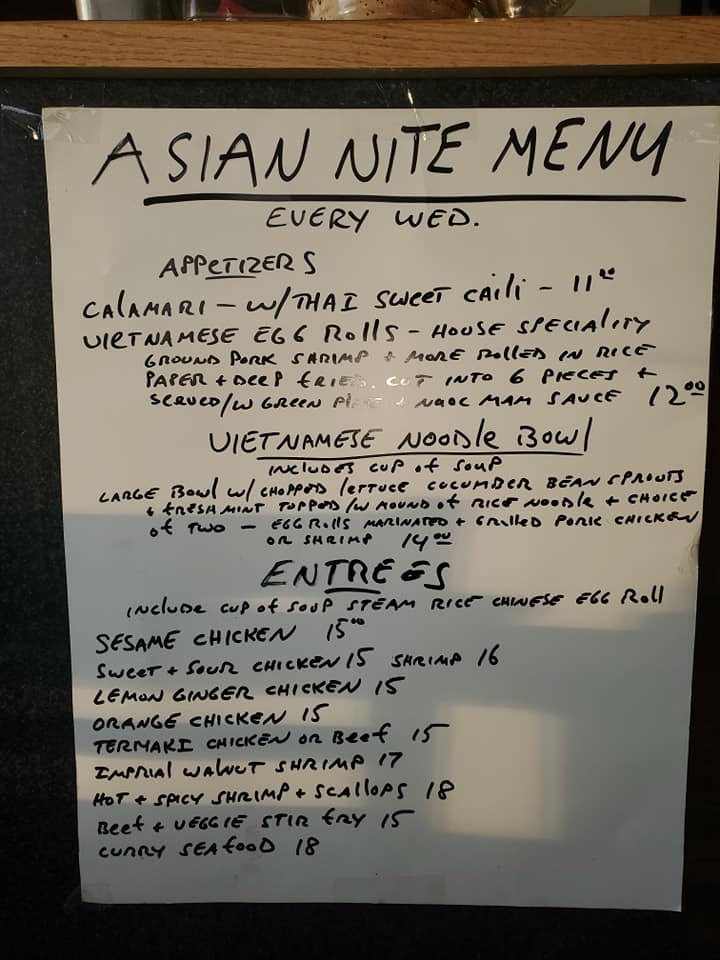 ASIAN NITE MENU
EVERY WED.
APPETIZERS
CALAMARI - W/THAI SWEET CHILI - 11.00
VIETNAMESE EGG ROLLS - HOUSE SPECIALITY
GROUND PORK SHRIMP + MORE ROLLED IN RICE
PAPER + DEEP FRIED. CUT INTO 6 PIECES +
SERVED/W GREEN + NUOC MAM SAUCE 12.00
VIETNAMESE NOODLE BOWL
INCLUDES CUP OF SOUP
LARGE BOWL W/ CHOPPED LETTUCE CUCUMBER BEAN SPROUTS
& FRESH MINT TOPPED/W MOUND OF RICE NOODLE + CHOICE
OF TWO - EGG ROLLS MARINATED + GRILLED PORK CHICKEN
OR SHRIMP 14.00
ENTREES
INCLUDE CUP OF SOUP STEAM RICE CHINESE EGG ROLL
SESAME CHICKEN 15.00
SWEET + SOUR CHICKEN 15 SHRIMP 16
LEMON GINGER CHICKEN 15
ORANGE CHICKEN 15
TERMAKI CHICKEN OR BEEF 15
IMPRIAL WALNUT SHRIMP 17
HOT + SPICY SHRIMP + SCALLOPS 18
BEEF + VEGGIE STIR FRY 15
CURRY SEAFOOD 18